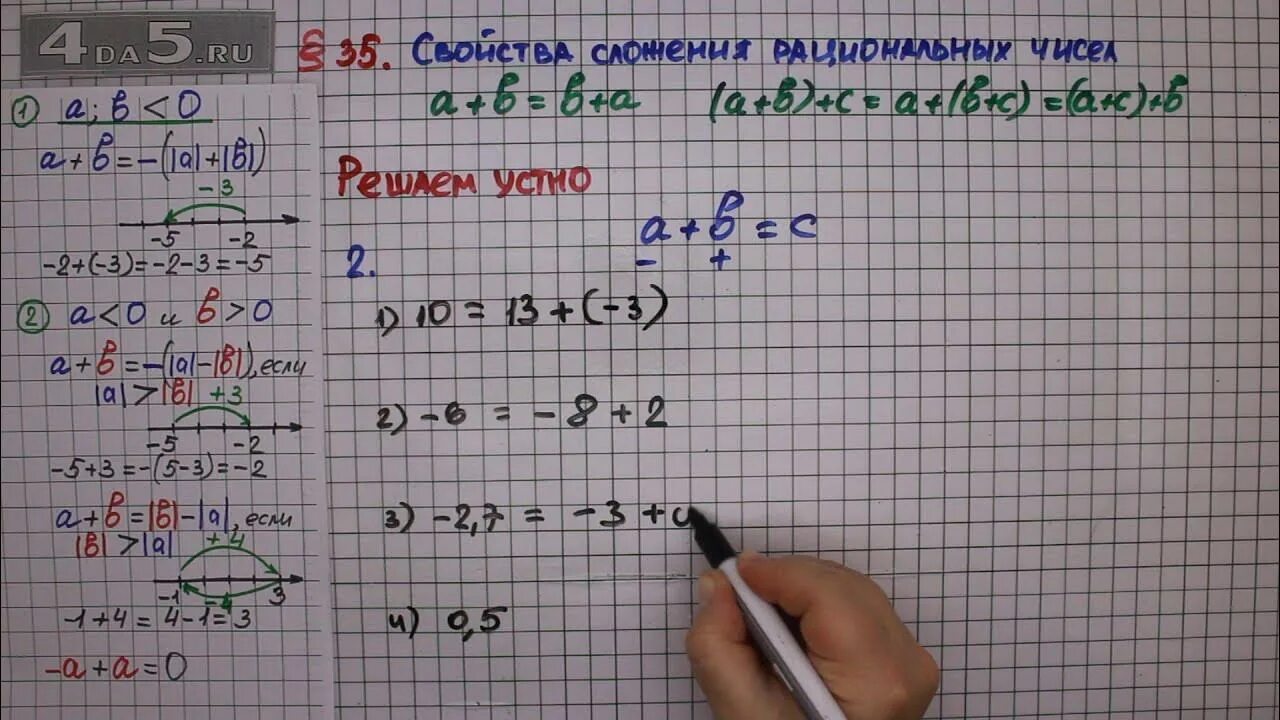 4DA5.RU
§ 35. Свойства сложения рациональных чисел
a + b = b + a (a+b)+c = a+(b+c) = (a+c)+b
① a; b < 0
a + b = -(|a|+|b|)
-3
-5 -2
-2+(-3)=-2-3=-5
② a < 0 и b > 0
a + b = -(|a|-|b|), если
|a| > |b| +3
-5 -2
-5+3 = -(5-3) = -2
a + b = |b| - |a|, если
|b| > |a| +4
-1 -4 3
-1+4 = 4-1 = 3
-a + a = 0
Решаем устно
a + b = c
- +
2.
1) 10 = 13 + (-3)
2) -6 = -8 + 2
3) -2,7 = -3 +
4) 0,5